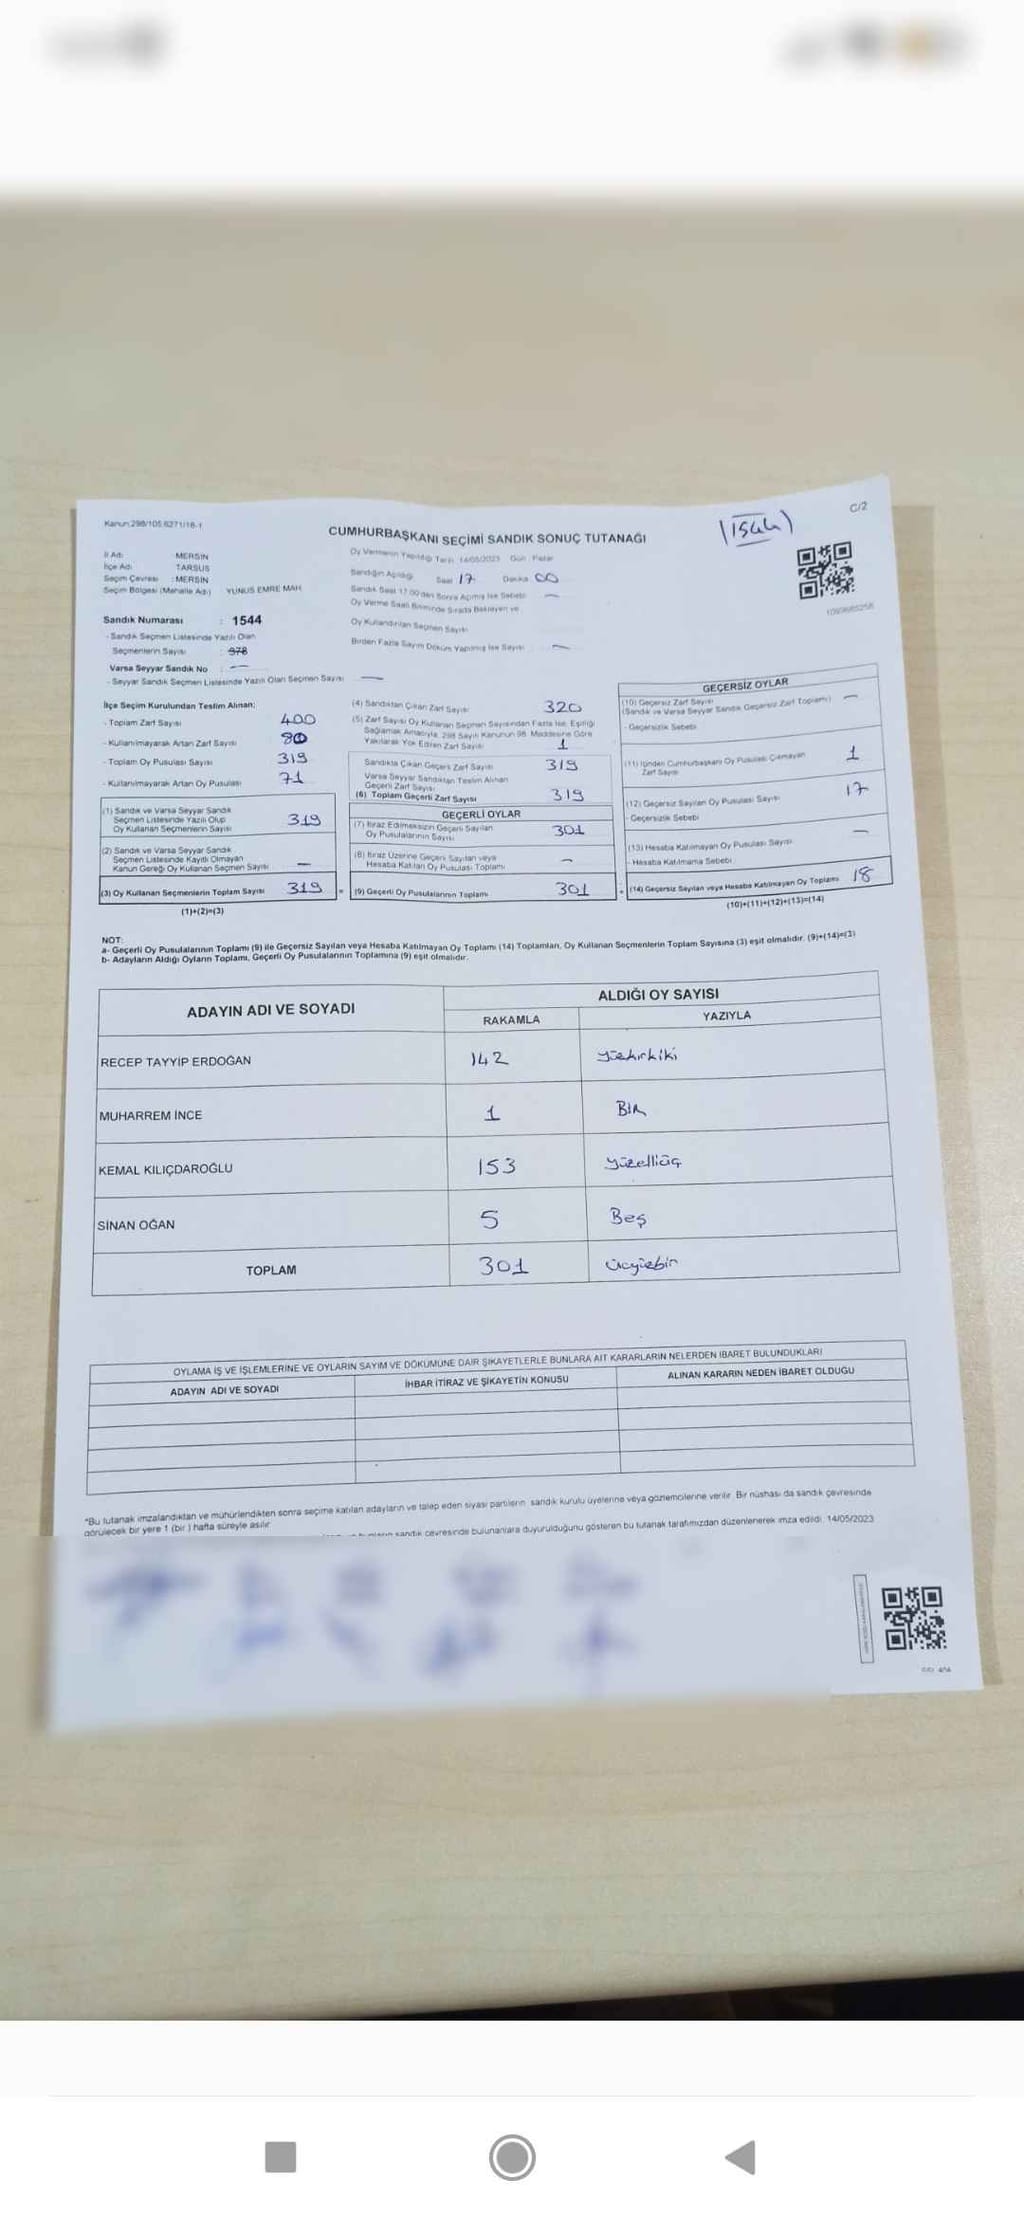 Kanun:298/105 6271/18-1
C/2
(1544)
CUMHURBAŞKANI SEÇİMİ SANDIK SONUÇ TUTANAĞI
İl Adı MERSİN
İlçe Adı TARSUS
Seçim Çevresi : MERSİN
Seçim Bölgesi (Mahalle Adı) YUNUS EMRE MAH
Sandık Numarası : 1544
- Sandık Seçmen Listesinde Yazılı Olan
Seçmenlerin Sayısı : 378
Varsa Seyyar Sandık No : —
- Seyyar Sandık Seçmen Listesinde Yazılı Olan Seçmen Sayısı —
Oy Vermenin Yapıldığı Tarih 14/05/2023 Gün : Pazar
Sandığın Açıldığı Saat 17 Dakika 00
Sandık Saat 17:00'den Sonra Açılmış İse Sebebi —
Oy Verme Saati Bitiminde Sırada Bekleyen ve
Oy Kullandırılan Seçmen Sayısı
Birden Fazla Sayım Döküm Yapılmış İse Sayısı —
İlçe Seçim Kurulundan Teslim Alınan;
- Toplam Zarf Sayısı 400
- Kullanılmayarak Artan Zarf Sayısı 80
- Toplam Oy Pusulası Sayısı 319
- Kullanılmayarak Artan Oy Pusulası 71
(1) Sandık ve Varsa Seyyar Sandık
Seçmen Listesinde Yazılı Olup
Oy Kullanan Seçmenlerin Sayısı 319
(2) Sandık ve Varsa Seyyar Sandık
Seçmen Listesinde Kayıtlı Olmayan
Kanun Gereği Oy Kullanan Seçmen Sayısı —
(3) Oy Kullanan Seçmenlerin Toplam Sayısı 319 =
(1)+(2)=(3)
(4) Sandıktan Çıkan Zarf Sayısı 320
(5) Zarf Sayısı Oy Kullanan Seçmen Sayısından Fazla İse, Eşitliği
Sağlamak Amacıyla, 298 Sayılı Kanunun 98. Maddesine Göre
Yakılarak Yok Edilen Zarf Sayısı 1
Sandıkta Çıkan Geçerli Zarf Sayısı 319
Varsa Seyyar Sandıktan Teslim Alınan
Geçerli Zarf Sayısı
(6) Toplam Geçerli Zarf Sayısı 319
GEÇERLİ OYLAR
(7) İtiraz Edilmeksizin Geçerli Sayılan
Oy Pusulalarının Sayısı 301
(8) İtiraz Üzerine Geçerli Sayılan veya
Hesaba Katılan Oy Pusulası Toplamı —
(9) Geçerli Oy Pusulalarının Toplamı 301
GEÇERSİZ OYLAR
(10) Geçersiz Zarf Sayısı
(Sandık ve Varsa Seyyar Sandık Geçersiz Zarf Toplamı) —
- Geçersizlik Sebebi
(11) İçinden Cumhurbaşkanı Oy Pusulası Çıkmayan
Zarf Sayısı 1
(12) Geçersiz Sayılan Oy Pusulası Sayısı 17
- Geçersizlik Sebebi
(13) Hesaba Katılmayan Oy Pusulası Sayısı —
- Hesaba Katılmama Sebebi
+ (14) Geçersiz Sayılan veya Hesaba Katılmayan Oy Toplamı 18
(10)+(11)+(12)+(13)=(14)
NOT:
a- Geçerli Oy Pusulalarının Toplamı (9) ile Geçersiz Sayılan veya Hesaba Katılmayan Oy Toplamı (14) Toplamları, Oy Kullanan Seçmenlerin Toplam Sayısına (3) eşit olmalıdır. (9)+(14)=(3)
b- Adayların Aldığı Oyların Toplamı, Geçerli Oy Pusulalarının Toplamına (9) eşit olmalıdır.
ADAYIN ADI VE SOYADI ALDIĞI OY SAYISI
RAKAMLA YAZIYLA
RECEP TAYYİP ERDOĞAN 142 yüzkırkiki
MUHARREM İNCE 1 BİR
KEMAL KILIÇDAROĞLU 153 yüzelliüç
SİNAN OĞAN 5 Beş
TOPLAM 301 Üçyüzbir
OYLAMA İŞ VE İŞLEMLERİNE VE OYLARIN SAYIM VE DÖKÜMÜNE DAİR ŞİKAYETLERLE BUNLARA AİT KARARLARIN NELERDEN İBARET BULUNDUKLARI
ADAYIN ADI VE SOYADI İHBAR İTİRAZ VE ŞİKAYETİN KONUSU ALINAN KARARIN NEDEN İBARET OLDUĞU
*Bu tutanak imzalandıktan ve mühürlendikten sonra seçime katılan adayların ve talep eden siyasi partilerin sandık kurulu üyelerine veya gözlemcilerine verilir. Bir nüshası da sandık çevresinde
görülecek bir yere 1 (bir ) hafta süreyle asılır.
sandık çevresinde bulunanlara duyurulduğunu gösteren bu tutanak tarafımızdan düzenlenerek imza edildi. 14/05/2023